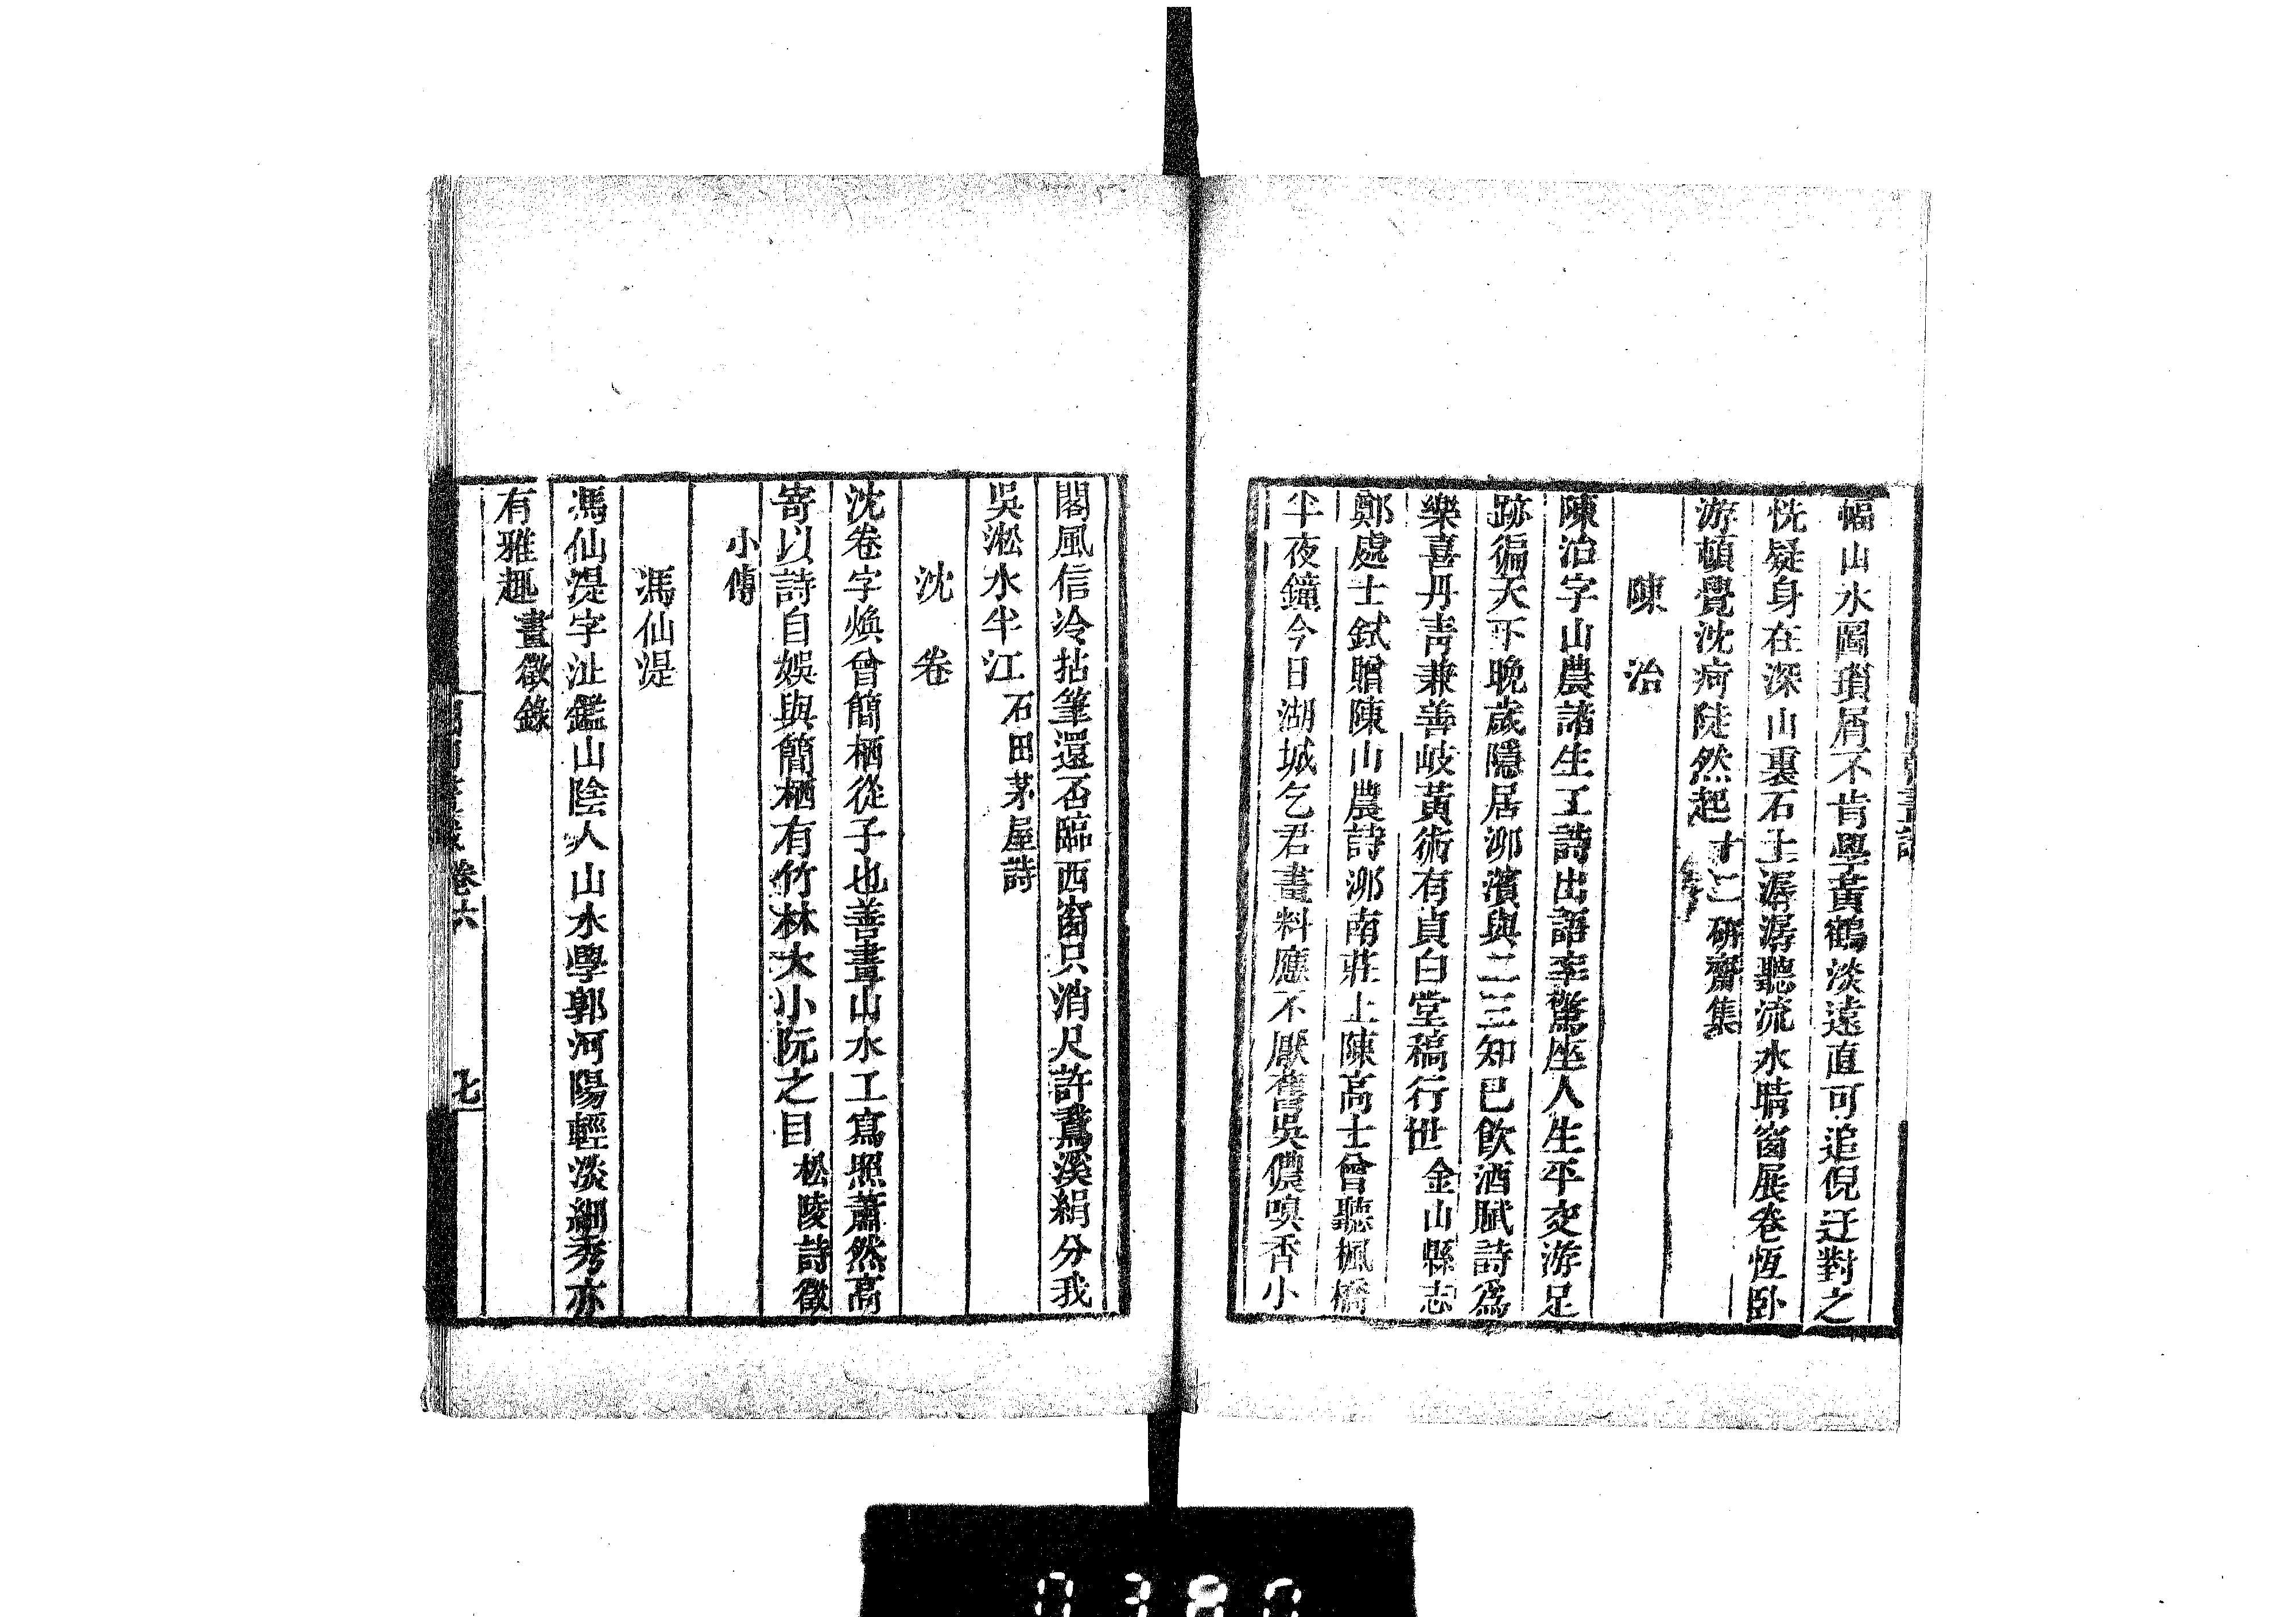 幅山水圖瑣屑不肯學黃鶴淡遠直可追倪迂對之
恍疑身在深山裏石上潺潺聽流水晴窗展卷恆臥
游頓覺沈疴陡然起 十二研齋集
陳 治
陳治字山農諸生工詩出語率驚座人生平交游足
跡徧天下晚歲隱居泖濱與二三知己飲酒賦詩爲
樂喜丹靑兼善岐黃術有貞白堂稿行世 金山縣志
鄭處士鉽贈陳山農詩泖南莊上陳高士曾聽楓橋
半夜鐘今日湖城乞君畫料應不厭舊吳儂嗅香小
閣風信冷拈筆還否臨西窗只消尺許鵞溪絹分我
吳淞水半江 石田茅屋詩
沈 卷
沈卷字煥曾簡栖從子也善畫山水工寫照蕭然高
寄以詩自娛與簡栖有竹林大小阮之目 松陵詩徵
小傳
馮仙湜
馮仙湜字沚鑑山陰人山水學郭河陽輕淡細秀亦
有雅趣 畫徵錄
卷六
七